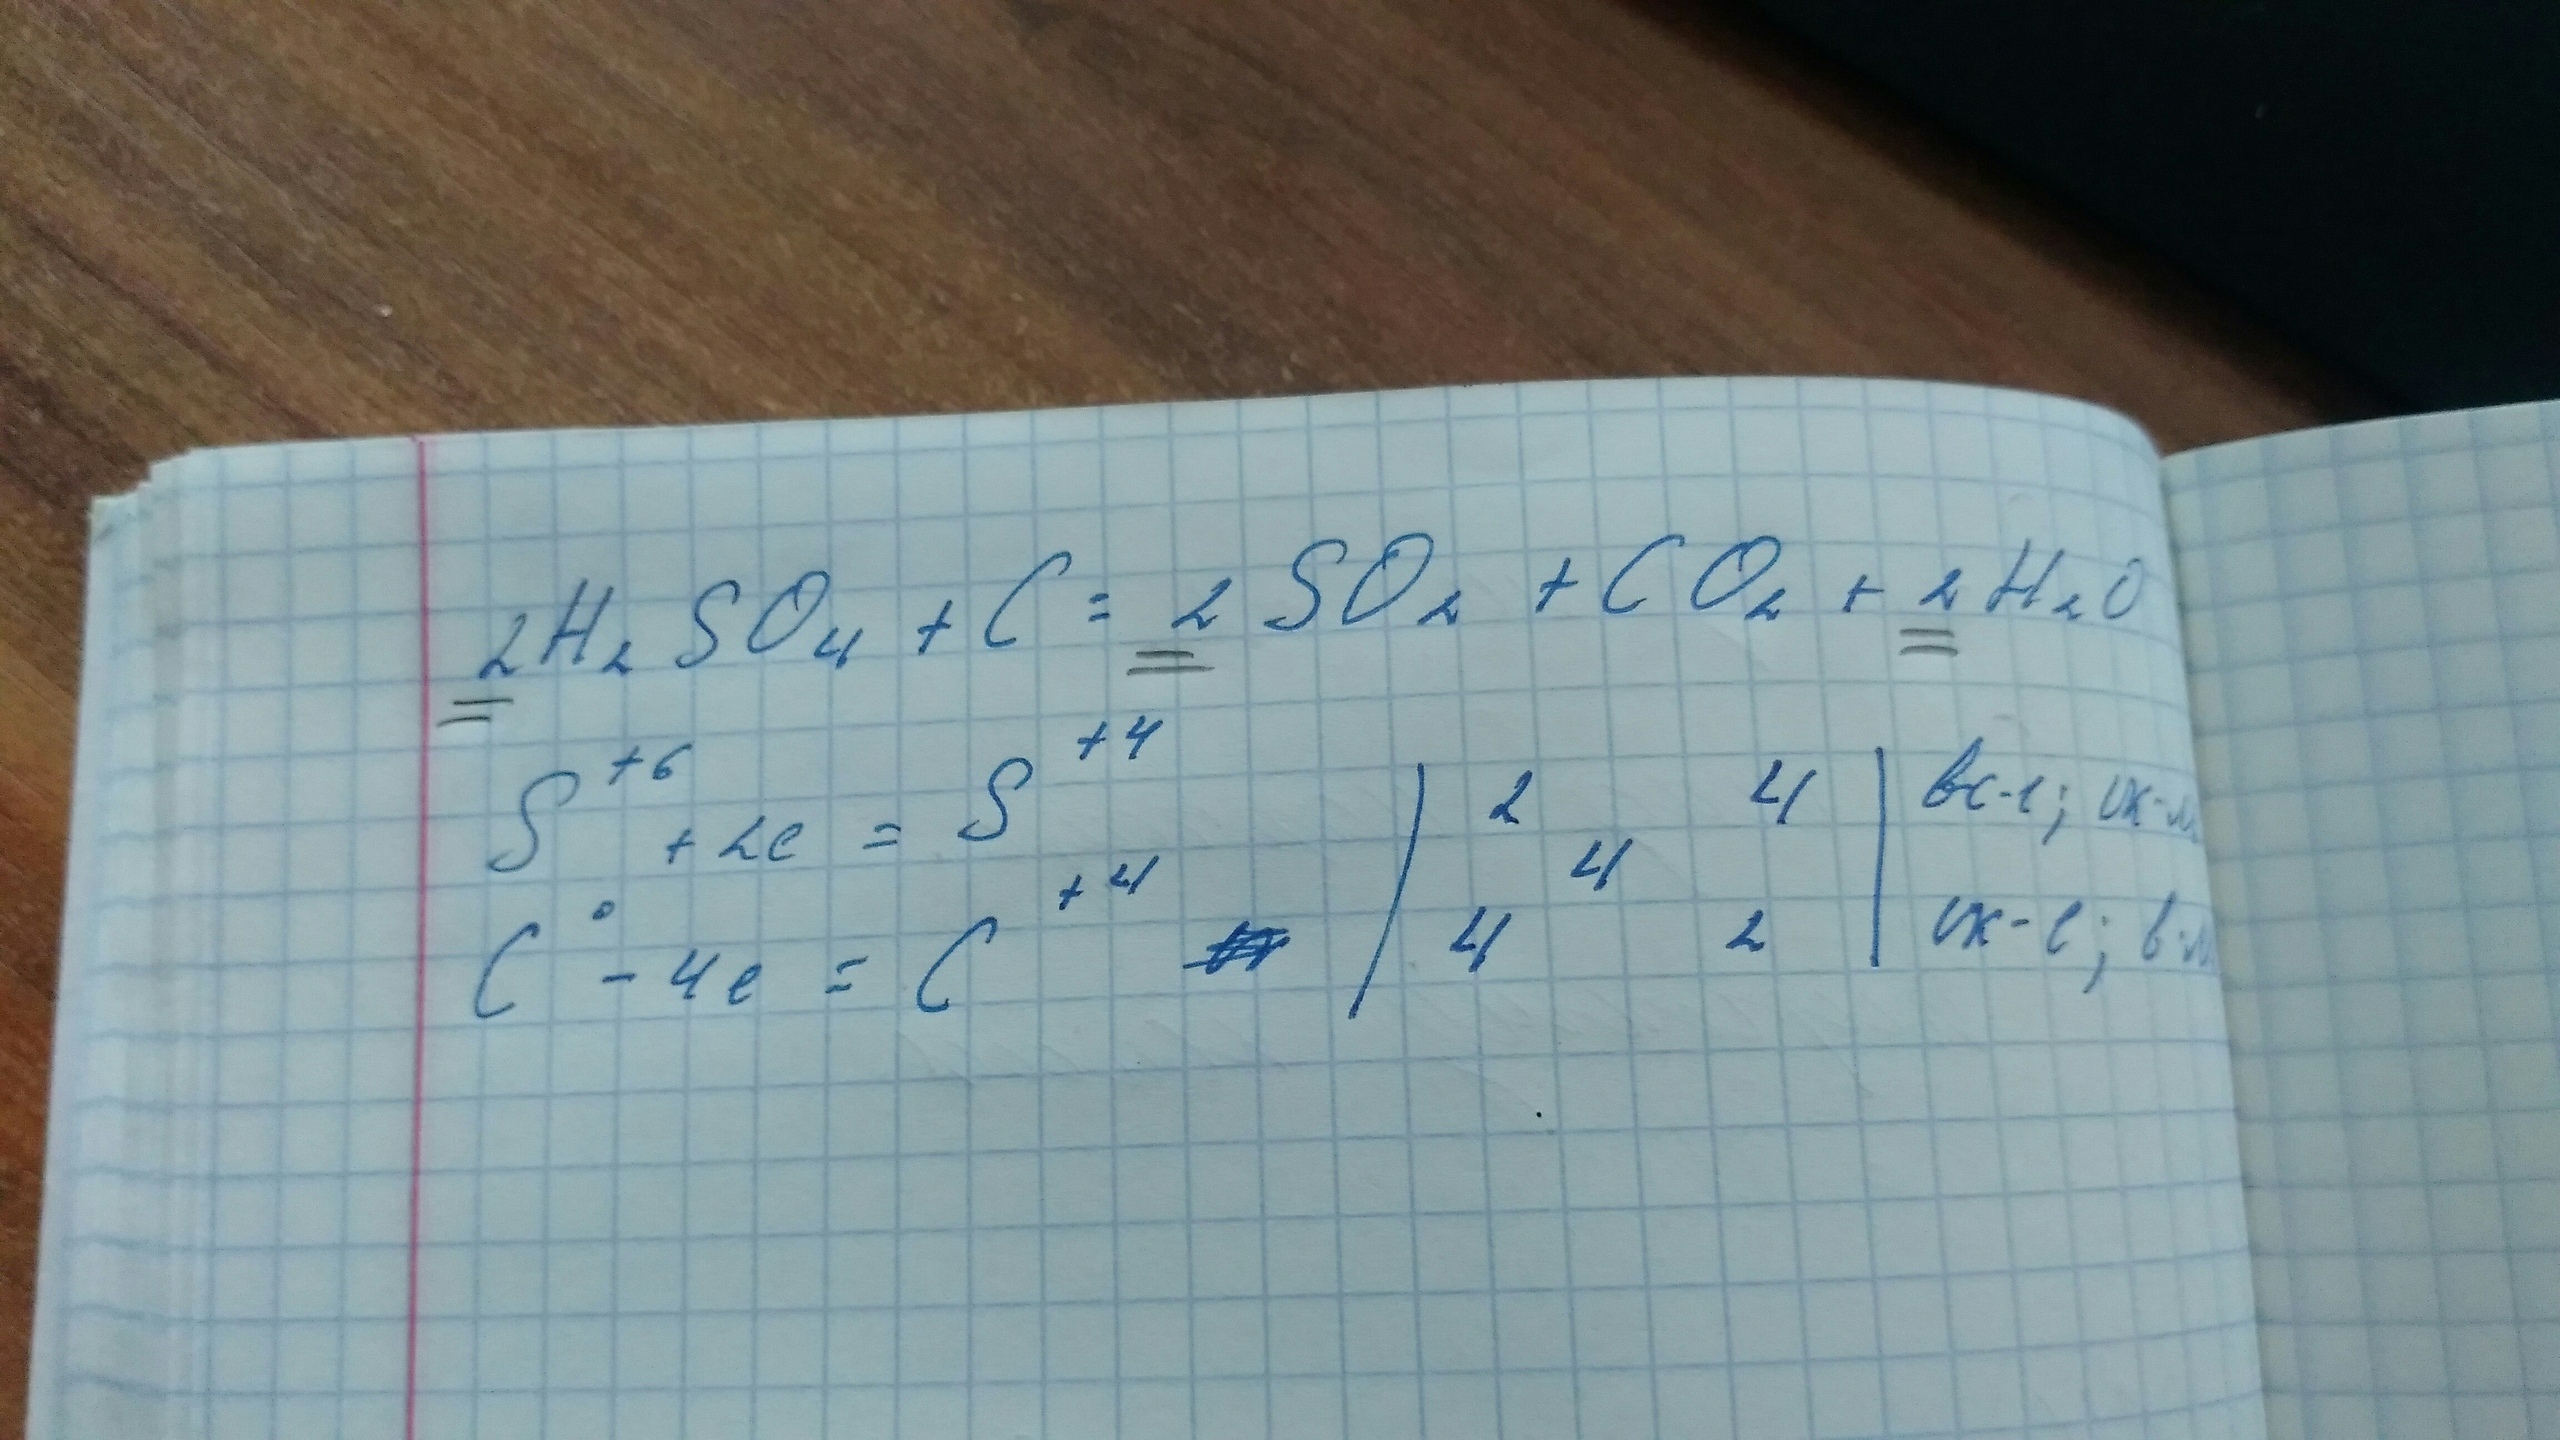 2H₂SO₄ + C = 2SO₂ + CO₂ + 2H₂O
S⁺⁶ + 2e = S⁺⁴ | 2 4 | вс-е; ок-л
4
C⁰ - 4e = C⁺⁴ | 4 2 | ок-е; в-л